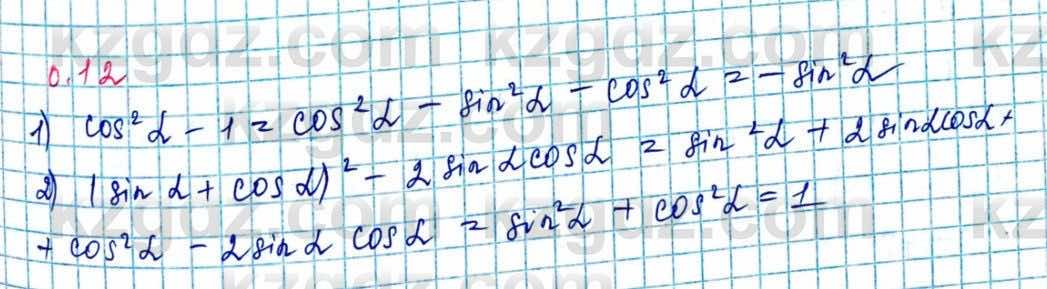 kzgdz.com kzgdz.com kz
0.12
1) cos²α - 1 = cos²α - sin²α - cos²α = - sin²α
kzgdz.com
2) (sin α + cos α)² - 2 sin α cos α = sin²α + 2 sinα cosα +
+ cos²α - 2 sin α cos α = sin²α + cos²α = 1
kzgdz.com kzgdz.com kz